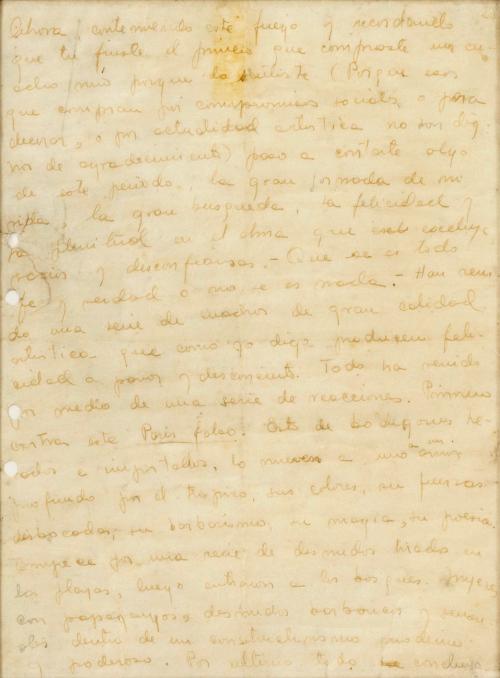 Ahora, contemplando este fuego y recordando
que tu fuiste el primero que compraste un cu
adro mio porque lo sentiste (Porque esos
que compran por compromisos sociales o para
decorar, o por actualidad artistica no son dig
nos de agradecimiento) paso a contarte algo
de este periodo, la gran jornada de mi
vida, la gran busqueda, la felicidad y
la plenitud en el alma que esté
y desconfianzas. - Que se es todo
fe y verdad o no se es nada. - Han veni
do una serie de cuadros de gran calidad
artistica que como yo digo producen feli-
cidad a pavos y desconcierto. Todo ha venido
por medio de una serie de reacciones. Primero
contra este Paris falso. Este de bodegones
a importados, lo nuevo a un amor
profundo por el tropico, sus colores, su fuerzas
desbocadas, su barbarismo, su magia, su poesia,
empece por una serie de desnudos tirados en
las playas, luego entraron a los bosques. Mujeres
con papagayos, desnudos barbaros y
dentro de un constructivismo moderno
y poderoso. Por ultimo todo concluyo